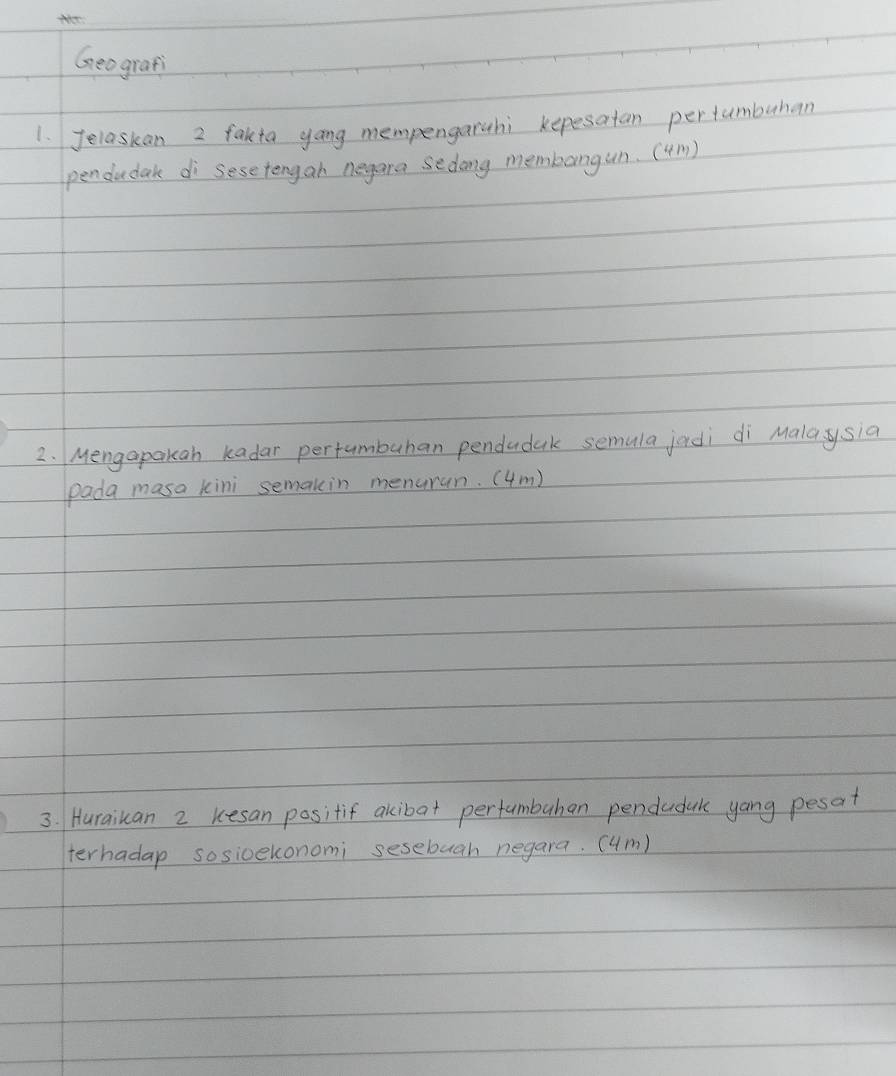 No:
Geografi
1. Jelaskan 2 fakta yang mempengaruhi kepesatan pertumbuhan
pendudak di sesetengah negara sedang membangun. (4m)
2. Mengapakah kadar pertumbuhan penduduk semula jadi di Malaysia
pada masa kini semakin menurun. (4m)
3. Huraikan 2 kesan positif akibat pertumbuhan penduduk yang pesat
terhadap sosioekonomi sesebuah negara. (4m)